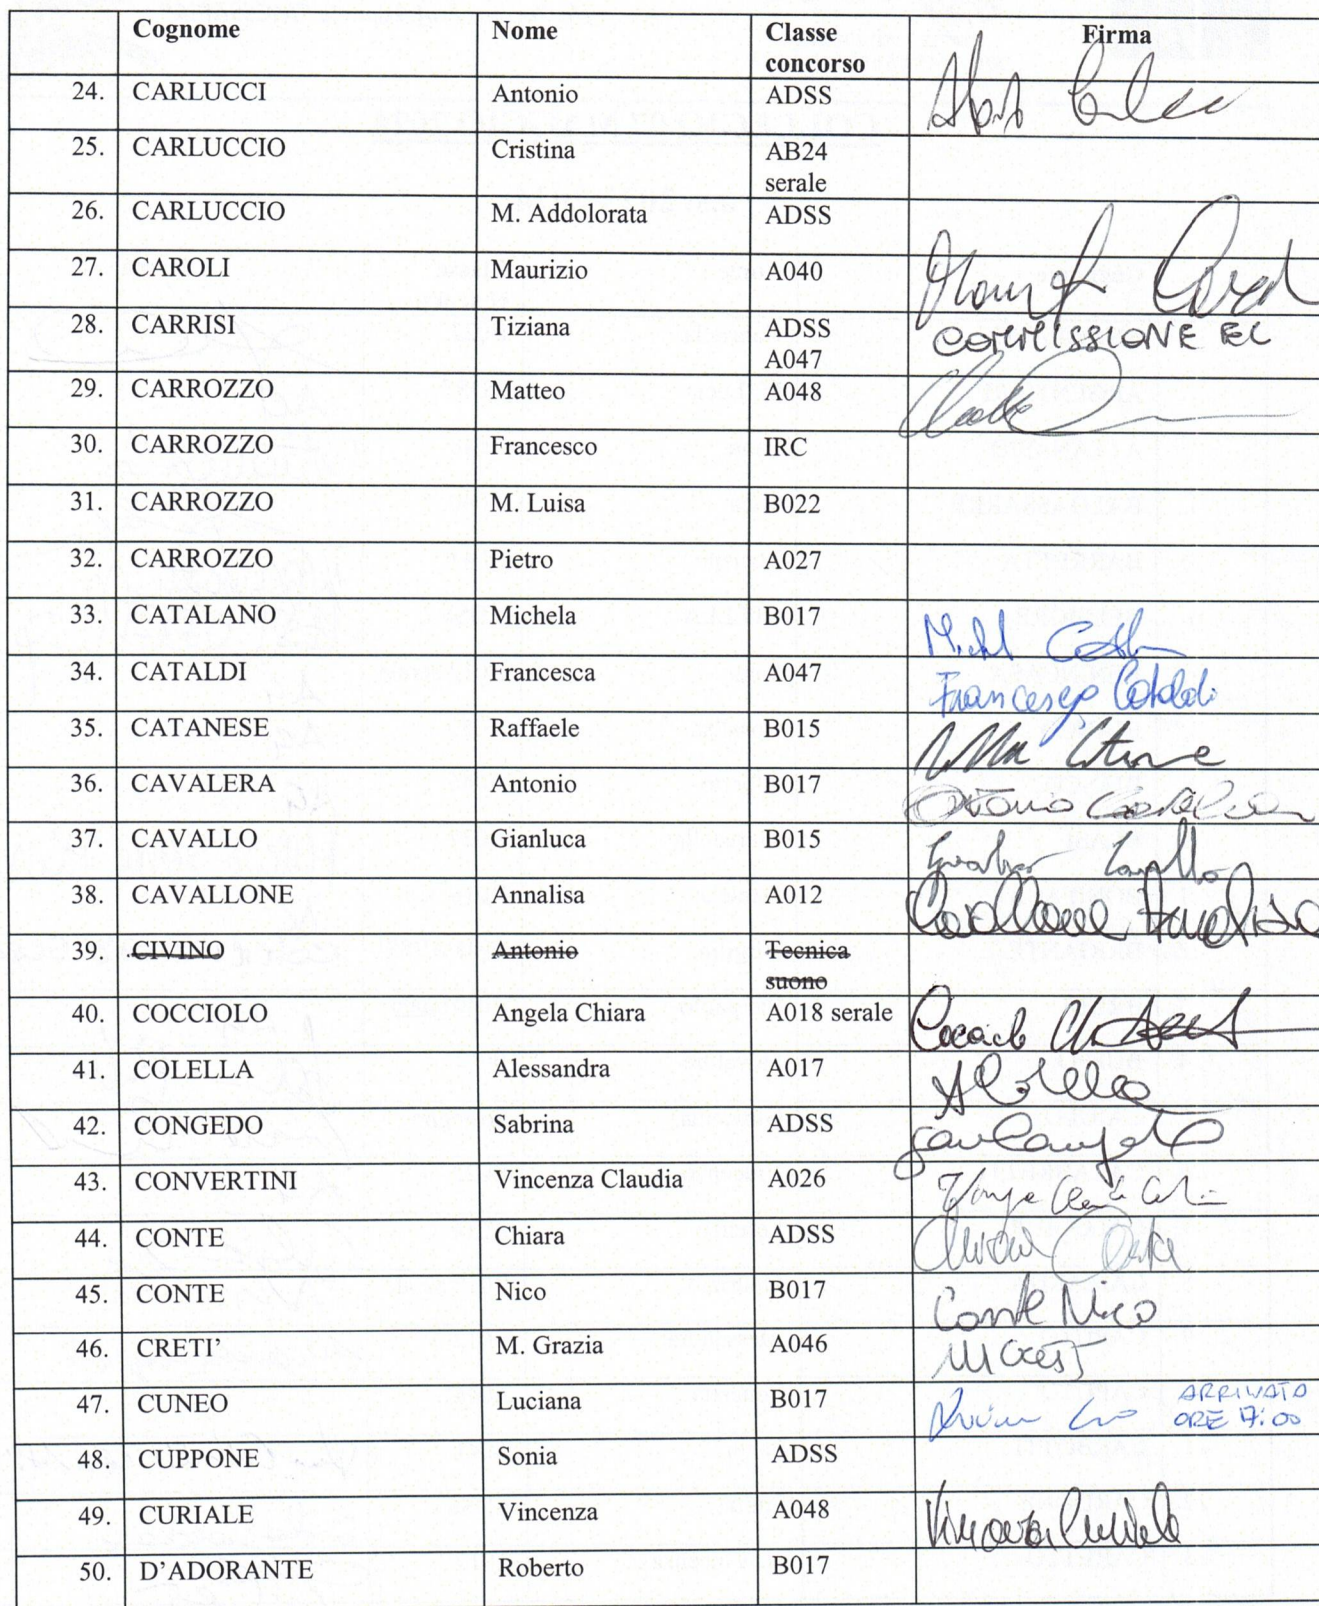 Cognome Nome Classe concorso Firma
24. CARLUCCI Antonio ADSS
25. CARLUCCIO Cristina AB24 serale
26. CARLUCCIO M. Addolorata ADSS
27. CAROLI Maurizio A040
28. CARRISI Tiziana ADSS A047 COMMISSIONE EL
29. CARROZZO Matteo A048
30. CARROZZO Francesco IRC
31. CARROZZO M. Luisa B022
32. CARROZZO Pietro A027
33. CATALANO Michela B017
34. CATALDI Francesca A047 Francesca Cataldi
35. CATANESE Raffaele B015
36. CAVALERA Antonio B017 Antonio Cavalera
37. CAVALLO Gianluca B015 Gianluca Cavallo
38. CAVALLONE Annalisa A012 Cavallone Annalisa
39. CIVINO Antonio Tecnica suono
40. COCCIOLO Angela Chiara A018 serale
41. COLELLA Alessandra A017 A Colella
42. CONGEDO Sabrina ADSS
43. CONVERTINI Vincenza Claudia A026
44. CONTE Chiara ADSS Chiara Conte
45. CONTE Nico B017 Conte Nico
46. CRETI' M. Grazia A046
47. CUNEO Luciana B017 ARRIVATA ORE 17:00
48. CUPPONE Sonia ADSS
49. CURIALE Vincenza A048 Vincenza Curiale
50. D'ADORANTE Roberto B017